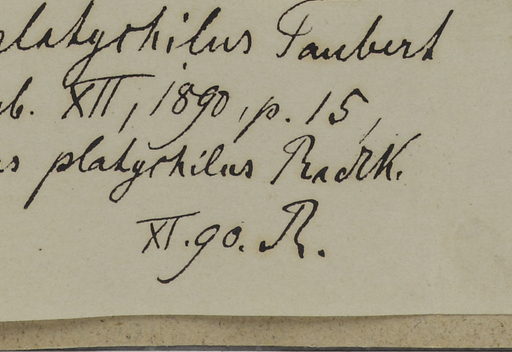 platychilus Taubert
b. XII, 1890, p. 15,
us platychilus Radlk.
XI. 90. R.